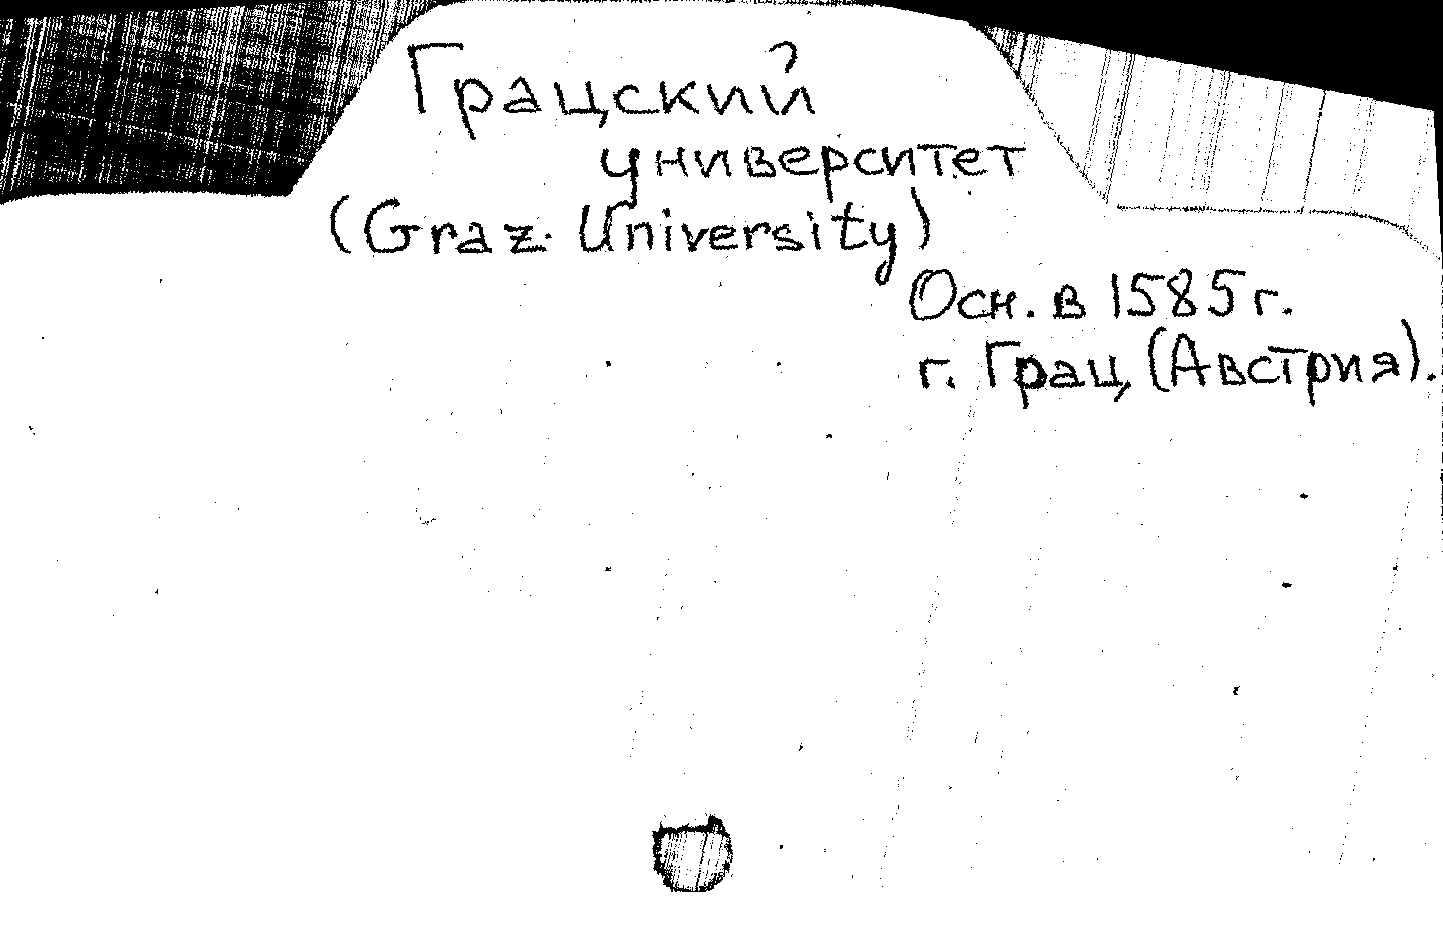 Грацский
университет
(Graz University)
Осн. в 1585 г.
г. Грац, (Австрия).